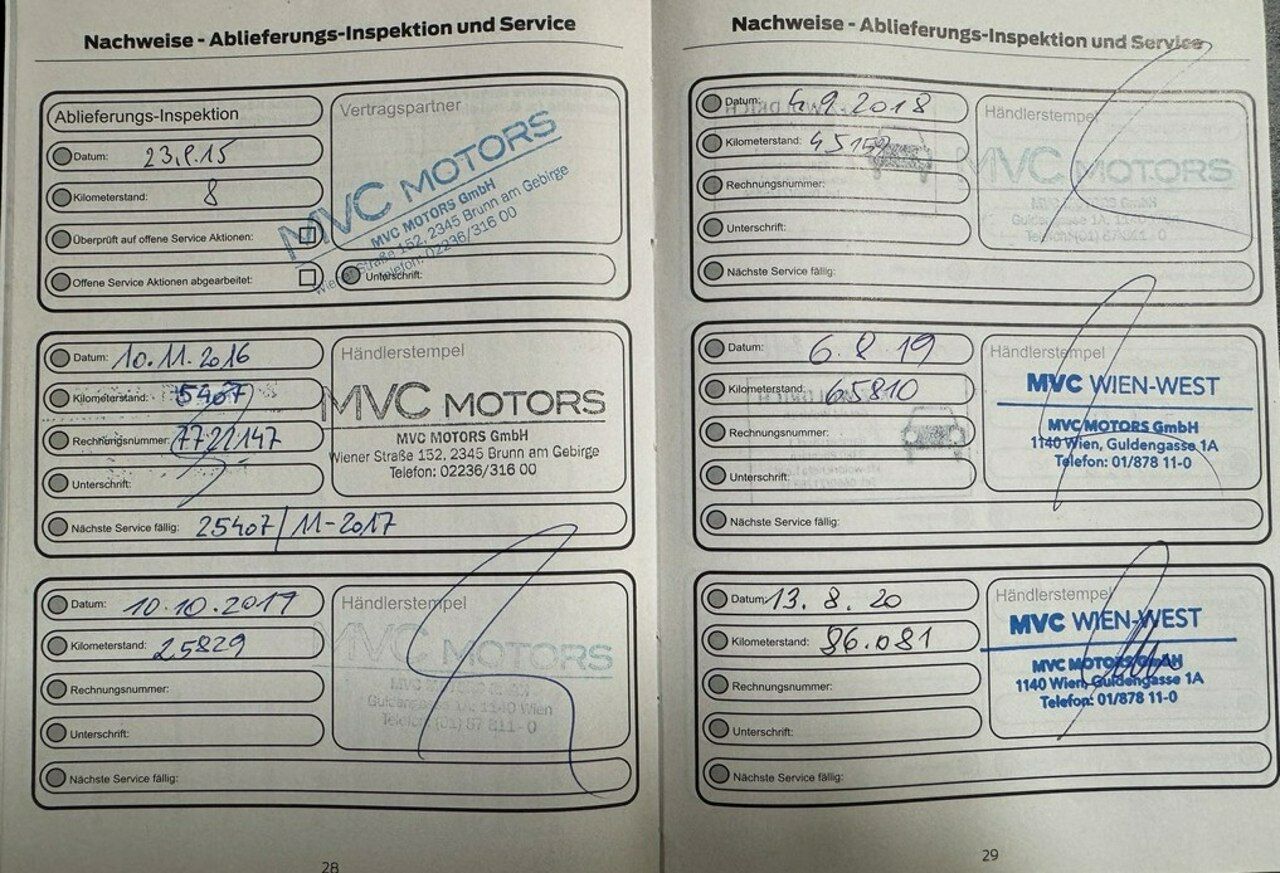 Nachweise - Ablieferungs-Inspektion und Service
Ablieferungs-Inspektion
Datum: 23.9.15
Kilometerstand: 8
Überprüft auf offene Service Aktionen:
Offene Service Aktionen abgearbeitet:
Vertragspartner
MVC MOTORS
MVC MOTORS GmbH
Wiener Straße 152, 2345 Brunn am Gebirge
Telefon: 02236/316 00
Unterschrift:
Datum: 10.11.2016
Kilometerstand: 5407
Rechnungsnummer: 7722147
Unterschrift:
Nächste Service fällig: 25407/11-2017
Händlerstempel
MVC MOTORS
MVC MOTORS GmbH
Wiener Straße 152, 2345 Brunn am Gebirge
Telefon: 02236/316 00
Datum: 10.10.2017
Kilometerstand: 25829
Rechnungsnummer:
Unterschrift:
Nächste Service fällig:
Händlerstempel
MVC MOTORS
Guldengasse 1A, 1140 Wien
Telefon (01) 87 811-0
28
Nachweise - Ablieferungs-Inspektion und Service
Datum: 4.9.2018
Kilometerstand: 45152
Rechnungsnummer:
Unterschrift:
Nächste Service fällig:
Händlerstempel
MVC MOTORS
Guldengasse 1A, 1140
Datum: 6.8.19
Kilometerstand: 65810
Rechnungsnummer:
Unterschrift:
Nächste Service fällig:
Händlerstempel
MVC WIEN-WEST
MVC MOTORS GmbH
1140 Wien, Guldengasse 1A
Telefon: 01/878 11-0
Datum: 13.8.20
Kilometerstand: 86.081
Rechnungsnummer:
Unterschrift:
Nächste Service fällig:
Händlerstempel
MVC WIEN-WEST
MVC MOTORS GmbH
1140 Wien, Guldengasse 1A
Telefon: 01/878 11-0
29